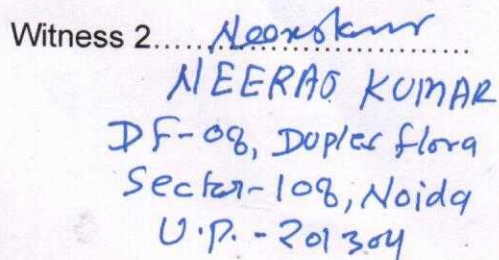 Witness 2.....Neerajkumar
NEERAJ KUMAR
DF-08, Duplex flora
Sector-108, Noida
U.P. - 201304